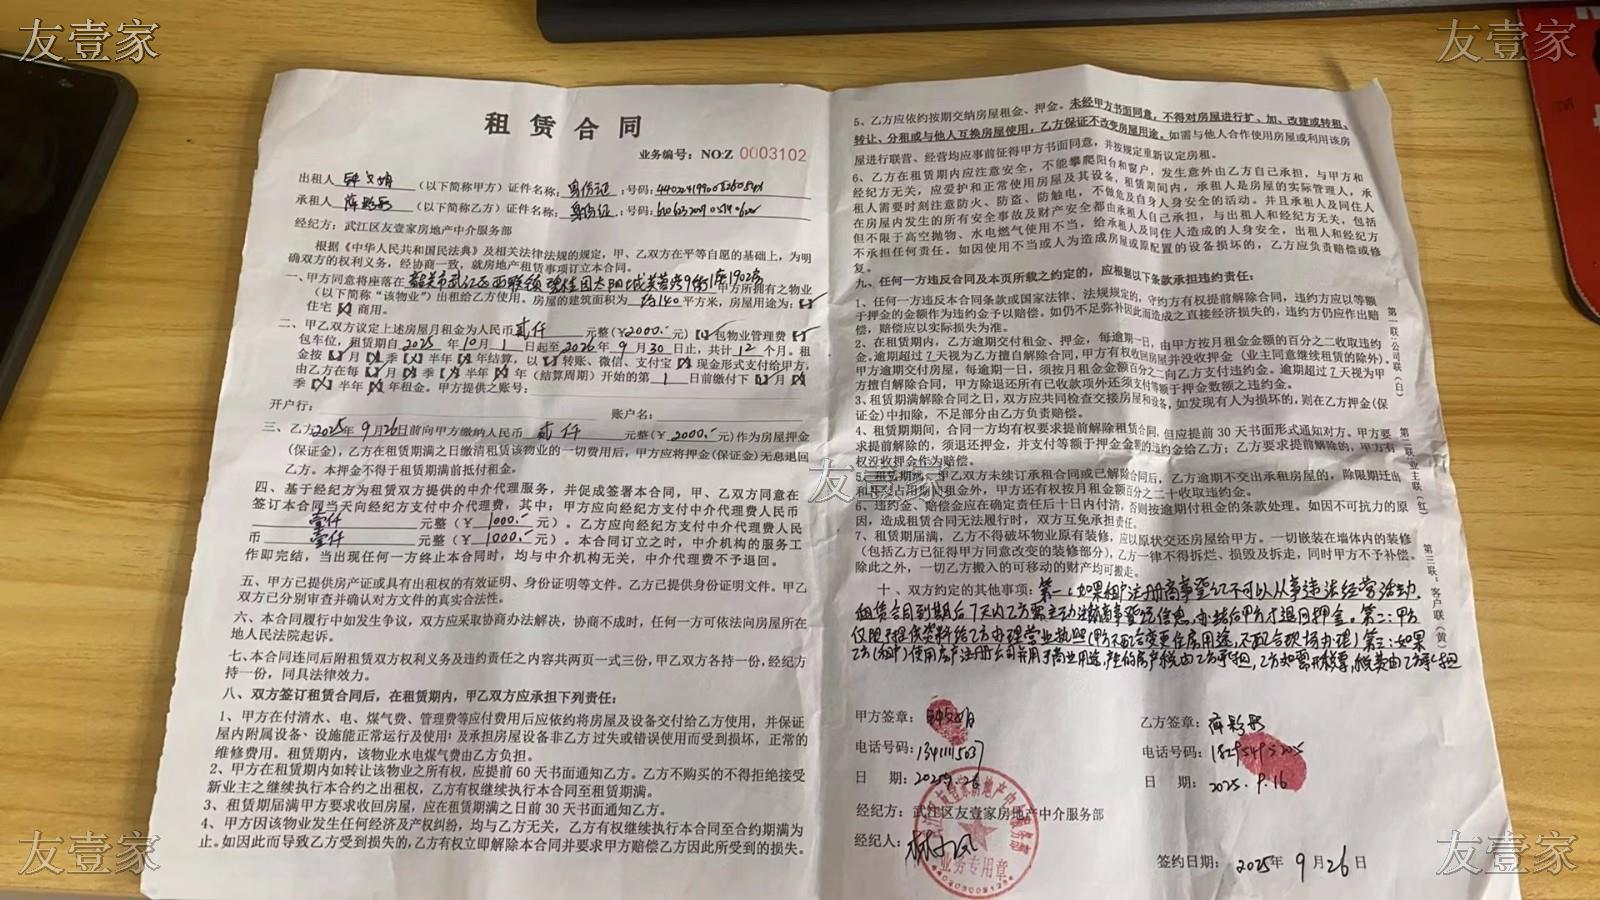 友壹家
友壹家
租赁合同
业务编号：NO:Z 0003102
出租人 （以下简称甲方）证件名称：身份证：号码：
承租人 （以下简称乙方）证件名称：身份证：号码：
经纪方：武江区友壹家房地产中介服务部
根据《中华人民共和国民法典》及相关法律法规的规定，甲、乙双方在平等自愿的基础上，为明
确双方的权利义务，经协商一致，就房地产租赁事项订立本合同。
一、甲方同意将座落在 韶关市武江区西联镇碧桂园太阳城芙蓉湾9街1座1902房 甲方所拥有之物业
（以下简称“该物业”）出租给乙方使用。房屋的建筑面积为 约140 平方米，房屋用途为：【✓】
住宅【×】商用。
二、甲乙双方议定上述房屋月租金为人民币 贰仟 元整（¥2000.-元）【】包物业管理费【】
包车位，租赁期自2025年10月1日起至2026年9月30日止，共计12个月。租
金按【】月【】季【】半年【】年结算，以【】转账、微信、支付宝【】现金形式支付给甲方，
由乙方在每【】月【】季【】半年【】年（结算周期）开始的第1日前缴付下【】月【】
季【】半年【】年租金。甲方提供之账号：
开户行： 账户名：
三、乙方2025年9月26日前向甲方缴纳人民币 贰仟 元整（¥2000.-元)作为房屋押金
(保证金)，乙方在租赁期满之日缴清租赁该物业的一切费用后，甲方应将押金(保证金)无息退回
乙方。本押金不得于租赁期满前抵付租金。
四、基于经纪方为租赁双方提供的中介代理服务，并促成签署本合同，甲、乙双方同意在
签订本合同当天向经纪方支付中介代理费，其中：甲方应向经纪方支付中介代理费人民币
壹仟 元整（¥ 1000.- 元）。乙方应向经纪方支付中介代理费人民
币 壹仟 元整（¥ 1000.- 元）。本合同订立之时，中介机构的服务工
作即完结，当出现任何一方终止本合同时，均与中介机构无关，中介代理费不予退回。
五、甲方已提供房产证或具有出租权的有效证明、身份证明等文件。乙方已提供身份证明文件。甲乙
双方已分别审查并确认对方文件的真实合法性。
六、本合同履行中如发生争议，双方应采取协商办法解决，协商不成时，任何一方可依法向房屋所在
地人民法院起诉。
七、本合同连同后附租赁双方权利义务及违约责任之内容共两页一式三份，甲乙双方各持一份，经纪方
持一份，同具法律效力。
八、双方签订租赁合同后，在租赁期内，甲乙双方应承担下列责任：
1、甲方在付清水、电、煤气费、管理费等应付费用后应依约将房屋及设备交付给乙方使用，并保证
屋内附属设备、设施能正常运行及使用；及承担房屋设备非乙方过失或错误使用而受到损坏，正常的
维修费用。租赁期内，该物业水电煤气费由乙方负担。
2、甲方在租赁期内如转让该物业之所有权，应提前60天书面通知乙方。乙方不购买的不得拒绝接受
新业主之继续执行本合约之出租权，乙方有权继续执行本合同至租赁期满。
3、租赁期届满甲方要求收回房屋，应在租赁期满之日前30天书面通知乙方。
4、甲方因该物业发生任何经济及产权纠纷，均与乙方无关，乙方有权继续执行本合同至合约期满为
止。如因此而导致乙方受到损失的，乙方有权立即解除本合同并要求甲方赔偿乙方因此所受到的损失。
5、乙方应依约按期交纳房屋租金、押金。未经甲方书面同意，不得对房屋进行扩、加、改建或转租、
转让、分租或与他人互换房屋使用，乙方保证不改变房屋用途。如需与他人合作使用房屋或利用该房
屋进行联营、经营均应事前征得甲方书面同意，并按规定重新议定房租。
6、乙方在租赁期内应注意安全，不能攀爬阳台和窗户，发生意外由乙方自己承担，与甲方和
经纪方无关，应爱护和正常使用房屋及其设备，租赁期间内，承租人是房屋的实际管理人，承
租人需要时刻注意防火、防盗、防触电，不做危及自身人身安全的活动。并且承租人及同住人
在房屋内发生的所有安全事故及财产安全都由承租人自己承担，与出租人和经纪方无关，包括
但不限于高空抛物、水电燃气使用不当，给承租人及同住人造成的人身安全，出租人和经纪方
不承担任何责任。如因使用不当或人为造成房屋或原配置的设备损坏的，乙方应负责赔偿或修
复。
九、任何一方违反合同及本页所载之约定的，应根据以下条款承担违约责任：
1、任何一方违反本合同条款或国家法律、法规规定的，守约方有权提前解除合同，违约方应以等额
于押金的金额作为违约金予以赔偿。如仍不足弥补因此而造成之直接经济损失的，违约方仍应作出赔
偿，赔偿应以实际损失为准。
2、在租赁期内，乙方逾期交付租金、押金，每逾期一日，由甲方按月租金金额的百分之二收取违约
金。逾期超过7天视为乙方擅自解除合同，甲方有权收回房屋并没收押金（业主同意继续租赁的除外)。
甲方逾期交付房屋，每逾期一日，须按月租金金额百分之二向乙方支付违约金。逾期超过7天视为甲
方擅自解除合同，甲方除退还所有已收款项外还须支付等额于押金数额之违约金。
3、租赁期满解除合同之日，双方应共同检查交接房屋和设备，如发现有人为损坏的，则在乙方押金(保
证金)中扣除，不足部分由乙方负责赔偿。
4、租赁期期间，合同一方均有权要求提前解除租赁合同，但应提前30天书面形式通知对方。甲方要
求提前解除的，须退还押金，并支付等额于押金金额的违约金给乙方；乙方要求提前解除的，甲方有
权没收押金作为赔偿。
5、租赁期满，甲乙双方未续订承租合同或已解除合同后，乙方逾期不交出承租房屋的，除限期迁出
和补交占用期间租金外，甲方还有权按月租金金额百分之二十收取违约金。
6、违约金、赔偿金应在确定责任后十日内付清，否则按逾期付租金的条款处理。如因不可抗力的原
因，造成租赁合同无法履行时，双方互免承担责任。
7、租赁期届满，乙方不得破坏物业原有装修，应以原状交还房屋给甲方。一切嵌装在墙体内的装修
（包括乙方已征得甲方同意改变的装修部分），乙方一律不得拆烂、损毁及拆走，同时甲方不予补偿。
除此之外，一切乙方搬入的可移动的财产均可搬走。
十、双方约定的其他事项：第一：如果租户注册商事登记不可以从事违法经营活动，
租赁合同到期后7天内乙方需主动注销商事登记信息，办结后甲方才退回押金。第二：甲方
仅限于提供资料给乙方办理营业执照（甲方不配合变更住房用途，不配合现场办理）第三：如果
乙方（租户）使用房产注册公司并用于商业用途，产生的房产税由乙方承担，乙方如需开税票，税费由乙方承担
第一联：公司联（白）
第二联：业主联（红）
第三联：客户联（黄）
甲方签章： 乙方签章：
电话号码： 电话号码：
日 期：2025.9.26 日 期：2025.9.16
经纪方：武江区友壹家房地产中介服务部
经纪人：
签约日期：2025年9月26日
武江区友壹家房地产中介服务部
业务专用章
友壹家
友壹家
友壹家